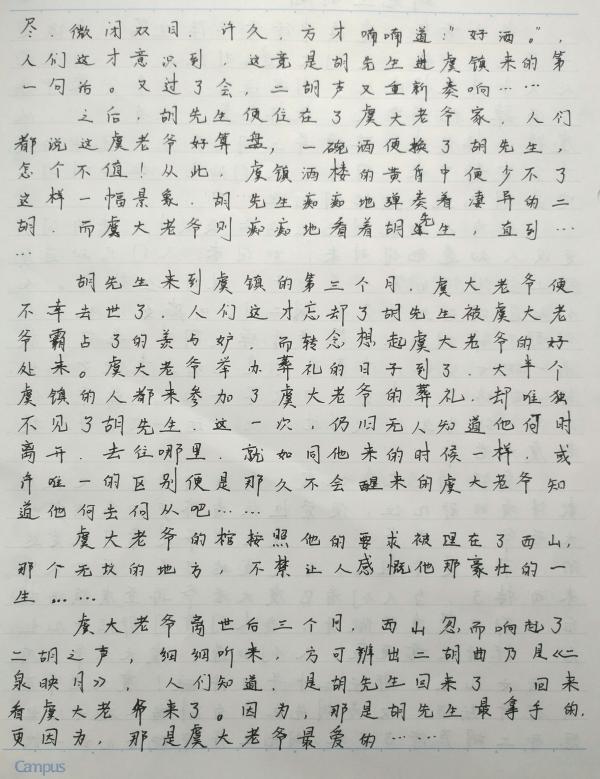 尽，微闭双目，许久，方才喃喃道："好酒。"，
人们这才意识到，这竟是胡先生进虞镇来的第
一句话。又过了会，二胡声又重新奏响……
之后，胡先生便住在了虞大老爷家，人们
都说这虞老爷好算盘，一碗酒便换了胡先生，
怎个不值！从此，虞镇酒楼的黄昏中便少不了
这样一幅景象，胡先生痴痴地弹奏着凄异的二
胡，而虞大老爷则痴痴地看着胡先生，直到…
…
胡先生来到虞镇的第三个月，虞大老爷便
不幸去世了，人们这才忘却了胡先生被虞大老
爷霸占了的羡与妒，而转念想起虞大老爷的好
处来。虞大老爷举办葬礼的日子到了，大半个
虞镇的人都来参加了虞大老爷的葬礼，却唯独
不见了胡先生，这一次，仍旧无人知道他何时
离开，去往哪里，就如同他来的时候一样，或
许唯一的区别便是那久不会醒来的虞大老爷知
道他何去何从吧……
虞大老爷的棺按照他的要求被埋在了西山，
那个无坟的地方，不禁让人感慨他那豪壮的一
生……
虞大老爷离世后三个月，西山忽而响起了
二胡之声，细细听来，方可辨出二胡曲乃是《二
泉映月》，人们知道，是胡先生回来了，回来
看虞大老爷来了。因为，那是胡先生最拿手的，
更因为，那是虞大老爷最爱的……
Campus